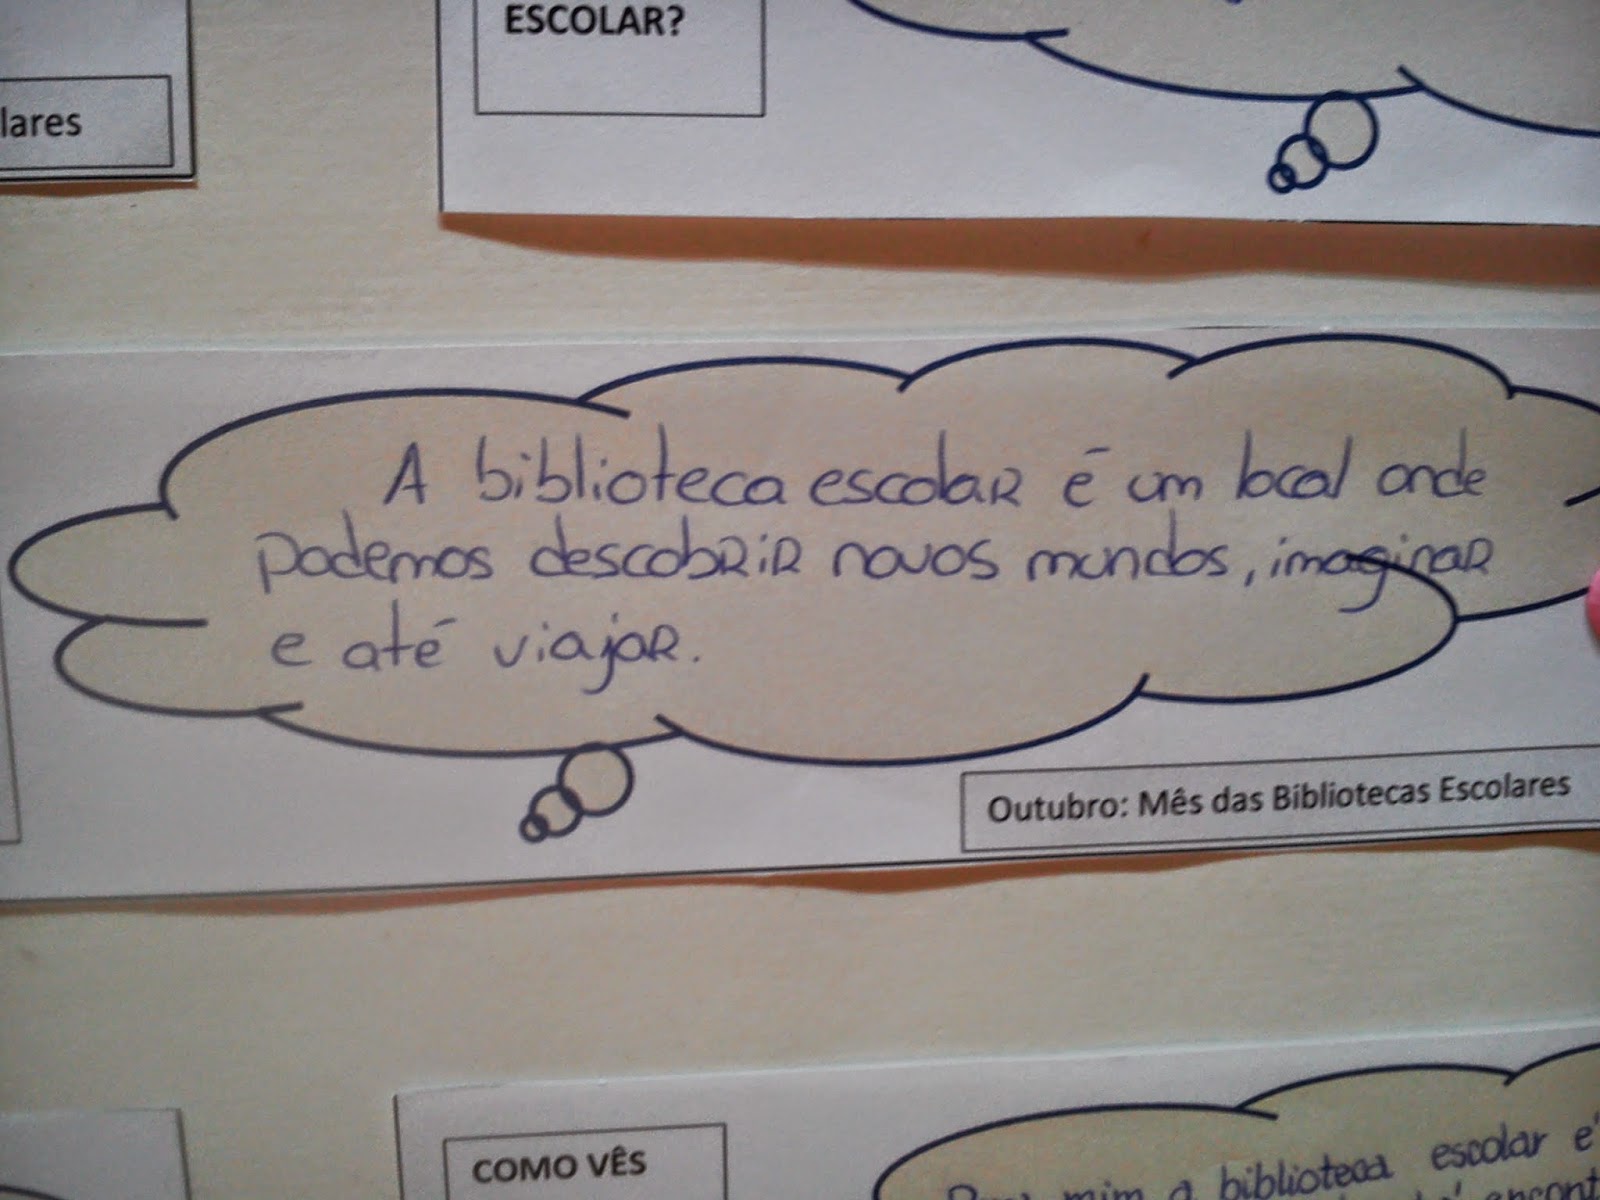 ESCOLAR?
lares
A biblioteca escolar é um local onde
podemos descobrir novos mundos, imaginar
e até viajar.
Outubro: Mês das Bibliotecas Escolares
COMO VÊS
mim a biblioteca escolar é